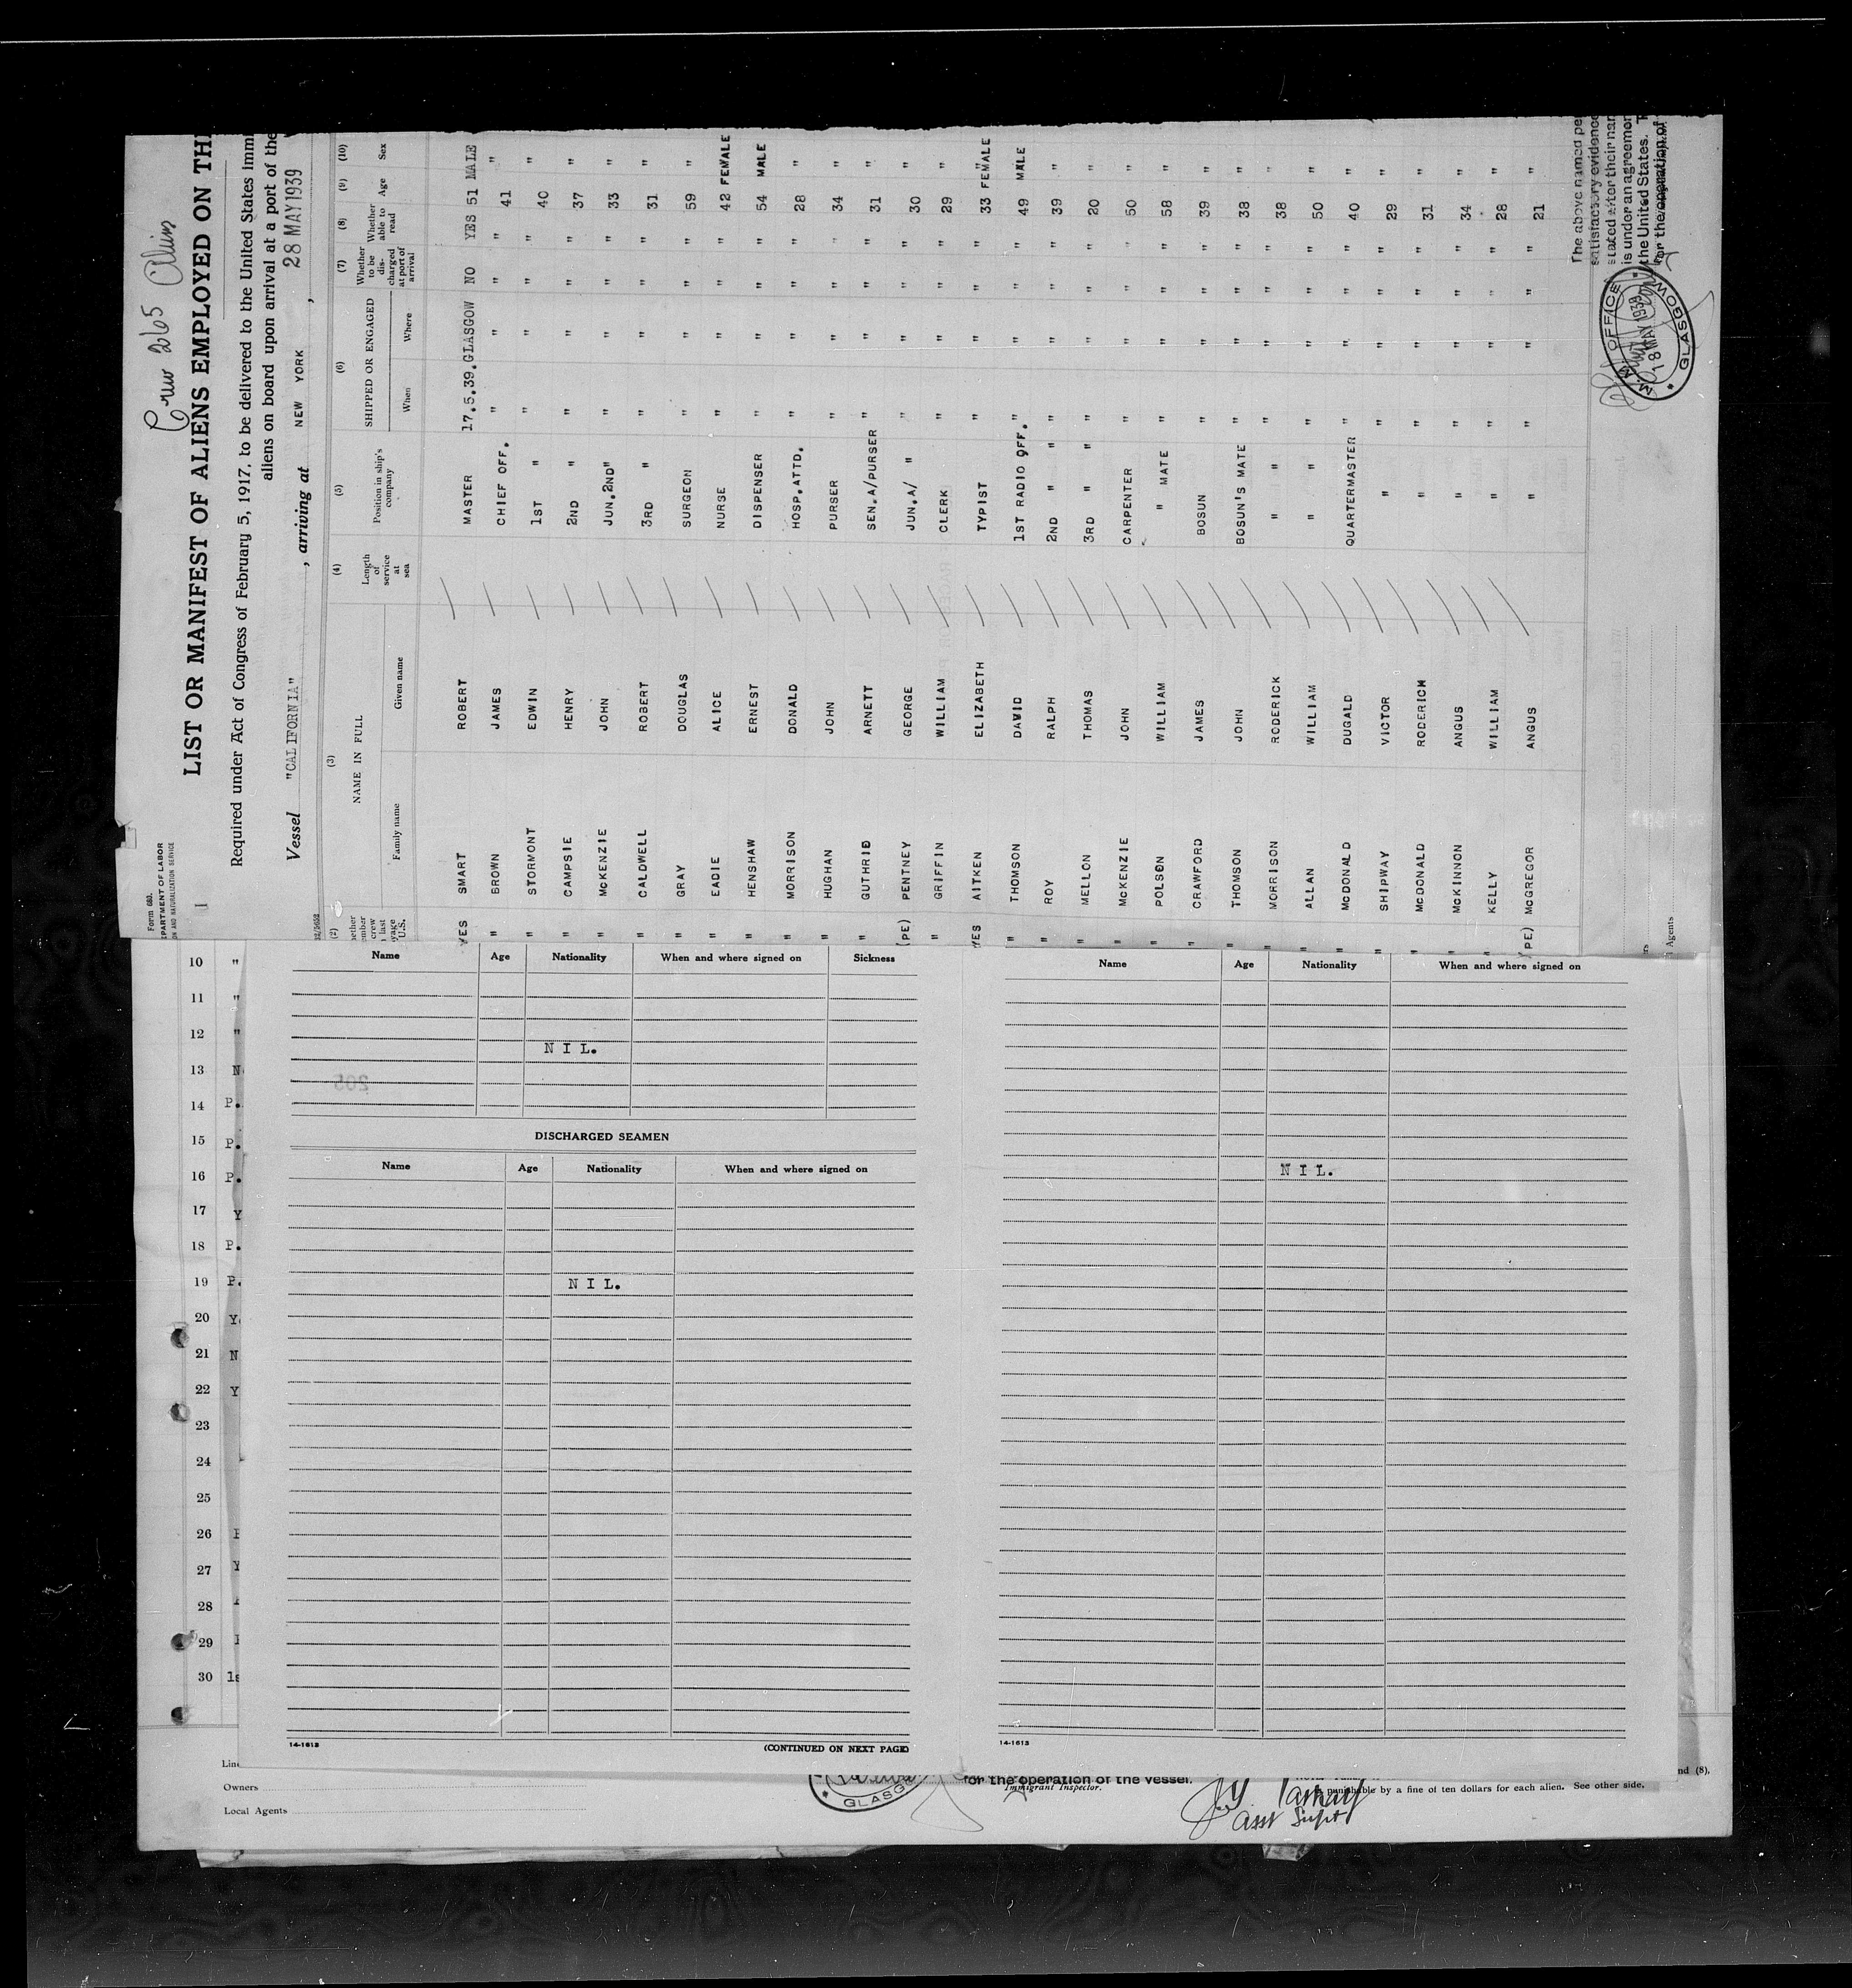 Crew 265 Aliens
Form 680.
PARTMENT OF LABOR
ON AND NATURALIZATION SERVICE
LIST OR MANIFEST OF ALIENS EMPLOYED ON TH
Required under Act of Congress of February 5, 1917, to be delivered to the United States Immi
aliens on board upon arrival at a port of the
Vessel "CALIFORNIA" , arriving at NEW YORK , 28 MAY 1939
(2) (3) (4) (5) (6) (7) (8) (9) (10)
NAME IN FULL Length of service at sea Position in ship's company SHIPPED OR ENGAGED Whether to be discharged at port of arrival Whether able to read Age Sex
Family name Given name When Where
YES SMART ROBERT MASTER 17.5.39. GLASGOW NO YES 51 MALE
" BROWN JAMES CHIEF OFF. " " " " 41 "
" STORMONT EDWIN 1ST " " " " " 40 "
" CAMPSIE HENRY 2ND " " " " " 37 "
" McKENZIE JOHN JUN.2ND" " " " " 33 "
" CALDWELL ROBERT 3RD " " " " " 31 "
" GRAY DOUGLAS SURGEON " " " " 59 "
" EADIE ALICE NURSE " " " " 42 FEMALE
" HENSHAW ERNEST DISPENSER " " " " 54 MALE
" MORRISON DONALD HOSP.ATTD. " " " " 28 "
" HUGHAN JOHN PURSER " " " " 34 "
" GUTHRIE ARNETT SEN.A/PURSER " " " " 31 "
(PE) PENTNEY GEORGE JUN.A/ " " " " " 30 "
" GRIFFIN WILLIAM CLERK " " " " 29 "
YES AITKEN ELIZABETH TYPIST " " " " 33 FEMALE
" THOMSON DAVID 1ST RADIO OFF. " " " " 49 MALE
" ROY RALPH 2ND " " " " " " 39 "
" MELLON THOMAS 3RD " " " " " " 20 "
" McKENZIE JOHN CARPENTER " " " " 50 "
" POLSON WILLIAM " MATE " " " " 58 "
" CRAWFORD JAMES BOSUN " " " " 39 "
" THOMSON JOHN BOSUN'S MATE " " " " 38 "
" MORRISON RODERICK " " " " " " 38 "
" ALLAN WILLIAM " " " " " " 50 "
" McDONALD DUGALD QUARTERMASTER " " " " 40 "
" SHIPWAY VICTOR " " " " " 29 "
" McDONALD RODERICK " " " " " 31 "
" McKINNON ANGUS " " " " " 34 "
" KELLY WILLIAM " " " " " 28 "
(PE) McGREGOR ANGUS " " " " " 21 "
The above named pe
satisfactory evidence
stated after their nam
is under an agreemen
the United States.
for the operation of
M.M. OFFICE
18 MAY 1939
GLASGOW
Agents
10 "
11 "
12 "
13 N
14 P.
15 P.
16 P.
17 Y
18 P.
19 P.
20 Y
21 N
22 Y
23
24
25
26
27 Y
28
29
30 1s
Name Age Nationality When and where signed on Sickness
NIL.
205
DISCHARGED SEAMEN
Name Age Nationality When and where signed on
NIL.
14-1613 (CONTINUED ON NEXT PAGE)
Name Age Nationality When and where signed on
NIL.
14-1613
Line
Owners
Local Agents
GLASG
for the operation of the vessel.
Immigrant Inspector.
nd (8),
punishable by a fine of ten dollars for each alien. See other side.
Asst Supt